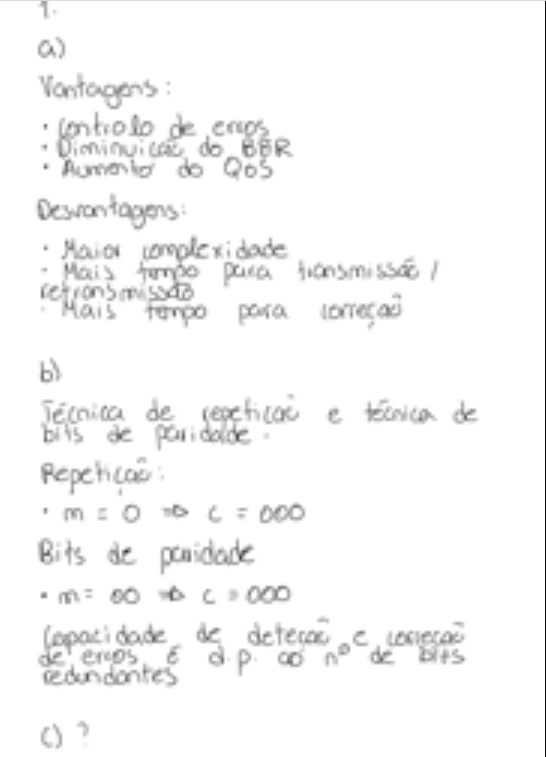 1.
a)
Vantagens:
· Controlo de erros
· Diminuição do BER
· Aumento do QoS
Desvantagens:
· Maior complexidade
· Mais tempo para transmissão /
retransmissão
· Mais tempo para correção
b)
Técnica de repetição e técnica de
bits de paridade.
Repetição:
· m = 0 => c = 000
Bits de paridade
· m = 00 => c = 000
Capacidade de deteção e correção
de erros é d.p. ao nº de bits
redundantes
c) ?